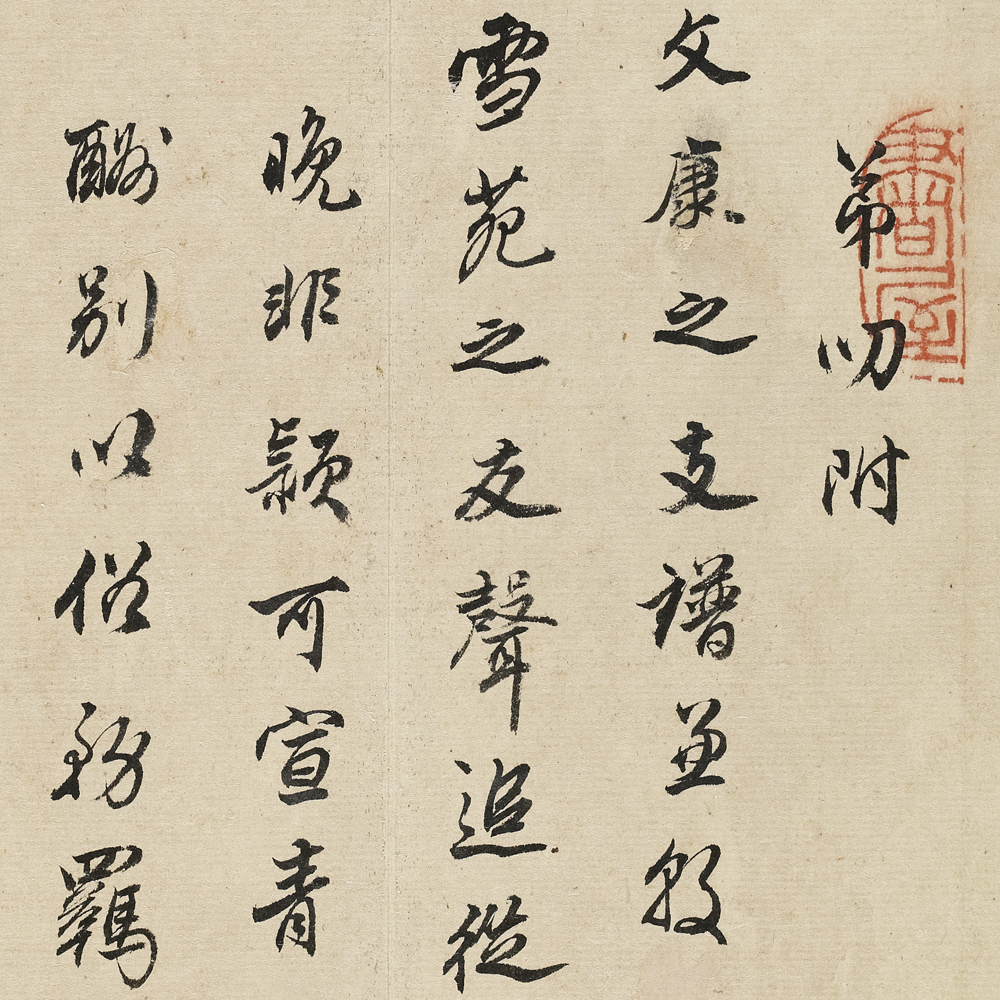 弟叨附
文康之支譜兼毅
雪苑之友聲追從
晚非穎可宣青
酬別以俗務羈